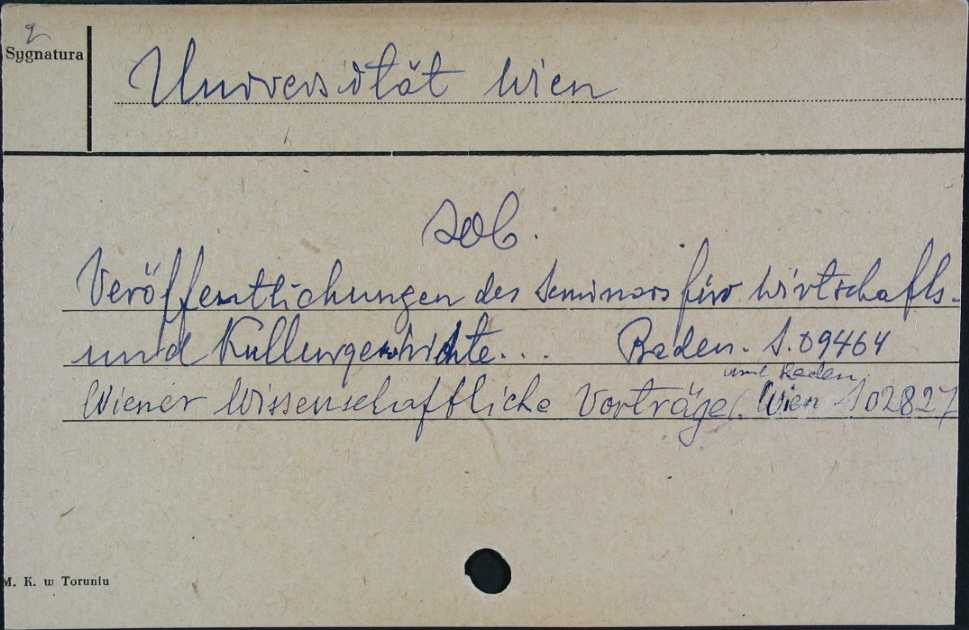 2
Sygnatura
Universität Wien
zob.
Veröffentlichungen des Seminars für Wirtschafts-
und Kulturgeschichte... Baden. S. 09464
und Reden
Wiener Wissenschaftliche Vorträge. Wien S 02827
M. K. w Toruniu